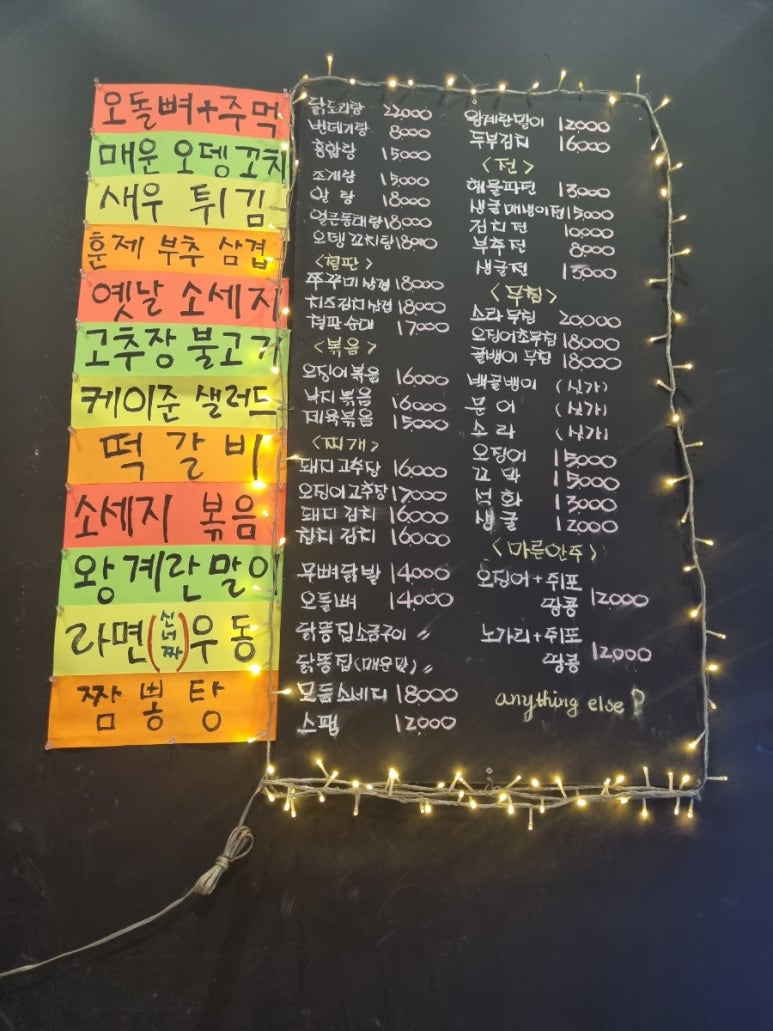 오돌뼈+주먹
매운 오뎅꼬치
새우 튀김
훈제 부추 삼겹
옛날 소세지
고추장 불고기
케이준 샐러드
떡갈비
소세지 볶음
왕계란말이
라면(신너짜)우동
짬뽕탕
닭도리탕 22000
번데기탕 8000
홍합탕 15000
조개탕 15000
알탕 18000
얼큰동태탕 18000
오뎅꼬치탕 18000
<철판>
쭈꾸미삼겹 18000
치즈김치삼겹 18000
철판순대 17000
<볶음>
오징어볶음 16000
낙지볶음 16000
제육볶음 15000
<찌개>
돼지고추장 16000
오징어고추장 17000
돼지김치 16000
참치김치 16000
무뼈닭발 14000
오돌뼈 14000
닭똥집소금구이 〃
닭똥집(매운맛) 〃
모듬소세지 18000
스팸 12000
왕계란말이 12000
두부김치 16000
<전>
해물파전 13000
생굴매생이전 15000
김치전 10000
부추전 8000
생굴전 13000
<무침>
소라무침 20000
오징어초무침 18000
골뱅이무침 18000
백골뱅이 (싯가)
문어 (싯가)
소라 (싯가)
오징어 15000
꼬막 15000
석화 13000
생굴 12000
<마른안주>
오징어+쥐포
땅콩 12000
노가리+쥐포
땅콩 12000
anything else?